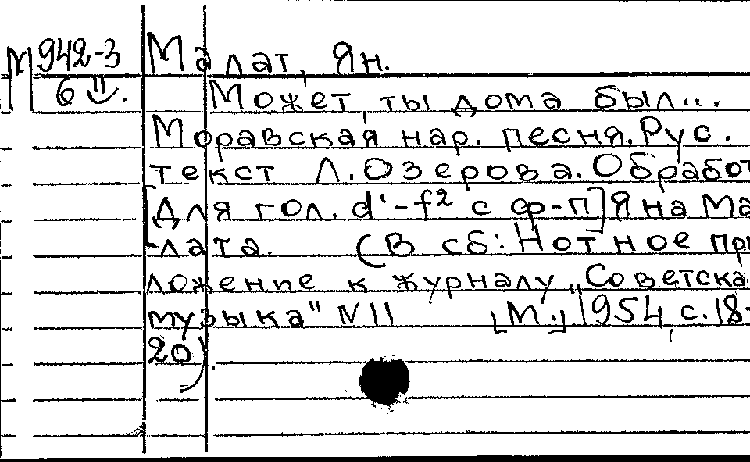 М 942-3 Малат, Ян.
6 II. Может, ты дома был...
Моравская нар. песня. Рус.
текст Л. Озерова. Обработ
[для гол. d'-f² с ф-п] Яна Ма-
лата. (В сб: Нотное при
ложение к журналу „Советска
музыка" N11 [М.], 1954, с. 18-
20).